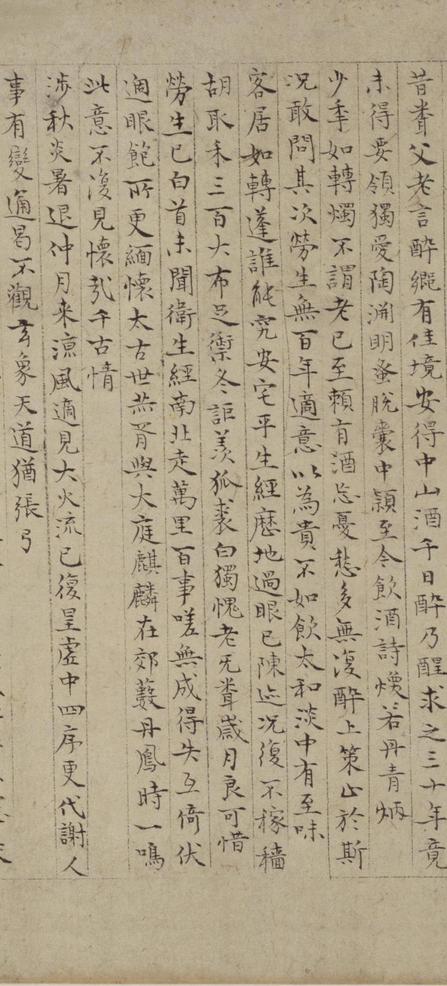 昔聞父老言醉鄉有佳境安得中山酒千日醉乃醒求之三十年竟
未得要領獨愛陶淵明蚤脫囊中穎至今飲酒詩煥若丹青炳
少年如轉燭不謂老已至賴有酒忘憂愁多無復醉上策止於斯
況敢問其次勞生無百年適意以為貴不如飲太和淡中有至味
客居如轉蓬誰能究安宅平生經歷地過眼已陳迹況復不稼穡
胡取禾三百大布足禦冬詎羨狐裘白獨愧老無聞歲月良可惜
勞生已白首未聞衛生經南北走萬里百事嗟無成得失互倚伏
過眼飽所更緬懷太古世燕胥與大庭麒麟在郊藪丹鳳時一鳴
此意不復見懷哉千古情
涉秋炎暑退仲月來涼風適見大火流已復呈虛中四序更代謝人
事有變通曷不觀玄象天道猶張弓